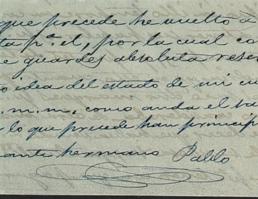 que precede he vuelto á
ta pª. el, por la cual co
e guardes absoluta reser
idea del estado de mi cu
. m. m. como anda el ba
lo que precede han princip
ante hermano Pablo